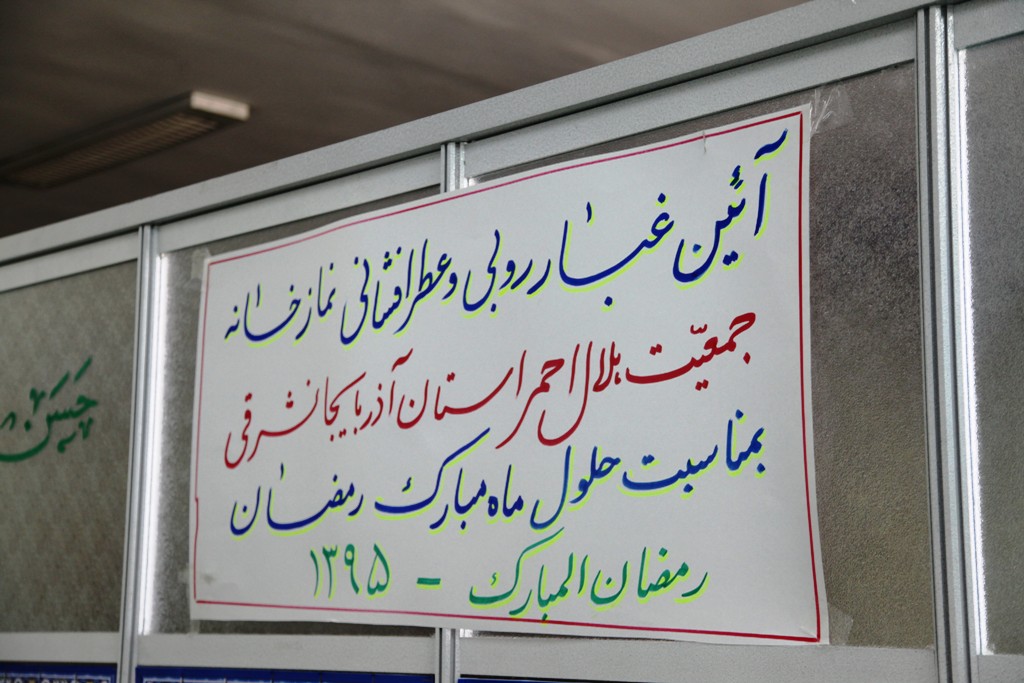 آئین غبارروبی و عطرافشانی نمازخانه
جمعیّت هلال احمر استان آذربایجانشرقی
بمناسبت حلول ماه مبارک رمضان
رمضان المبارک - ۱۳۹۵
حَسَن